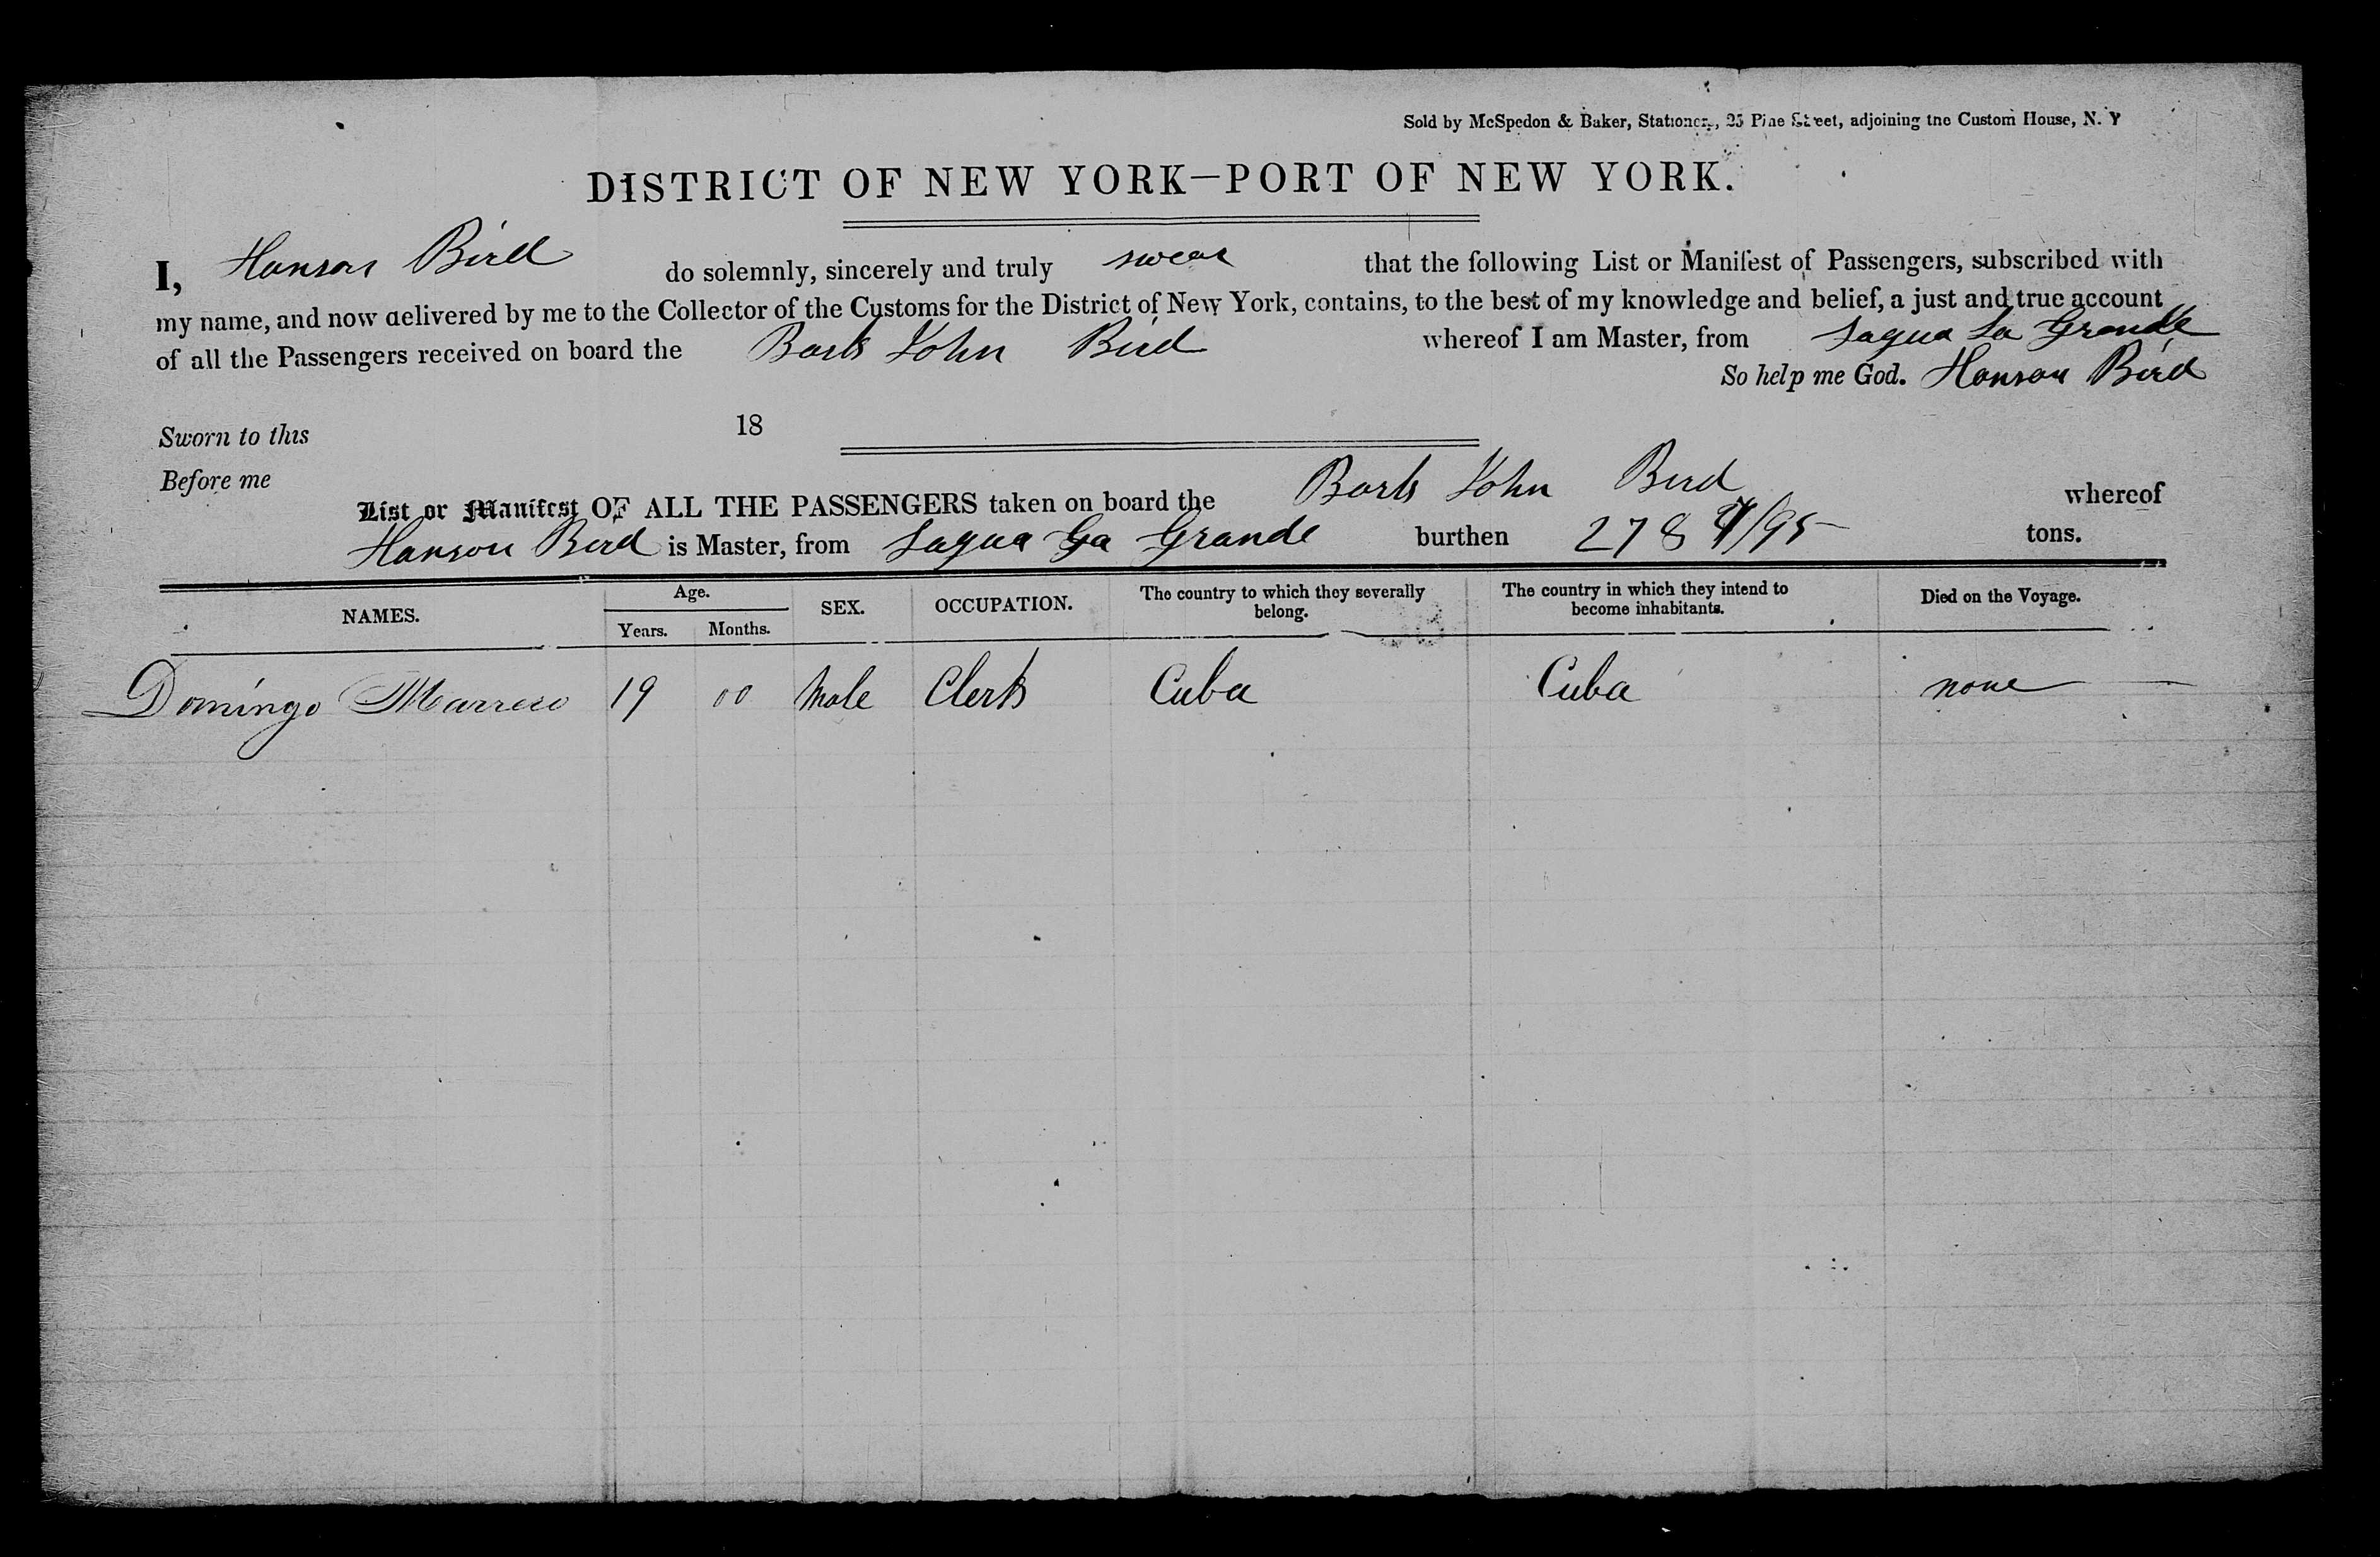 Sold by McSpedon & Baker, Stationers, 25 Pine Street, adjoining the Custom House, N. Y
DISTRICT OF NEW YORK—PORT OF NEW YORK.
I, Hanson Bird do solemnly, sincerely and truly swear that the following List or Manifest of Passengers, subscribed with
my name, and now delivered by me to the Collector of the Customs for the District of New York, contains, to the best of my knowledge and belief, a just and true account
of all the Passengers received on board the Bark John Bird whereof I am Master, from Sagua La Grande
So help me God. Hanson Bird
Sworn to this 18
Before me
List or Manifest OF ALL THE PASSENGERS taken on board the Bark John Bird whereof
Hanson Bird is Master, from Sagua La Grande burthen 278 /95 tons.
NAMES. Age. Years. Months. SEX. OCCUPATION. The country to which they severally belong. The country in which they intend to become inhabitants. Died on the Voyage.
Domingo Marrero 19 00 Male Clerk Cuba Cuba none